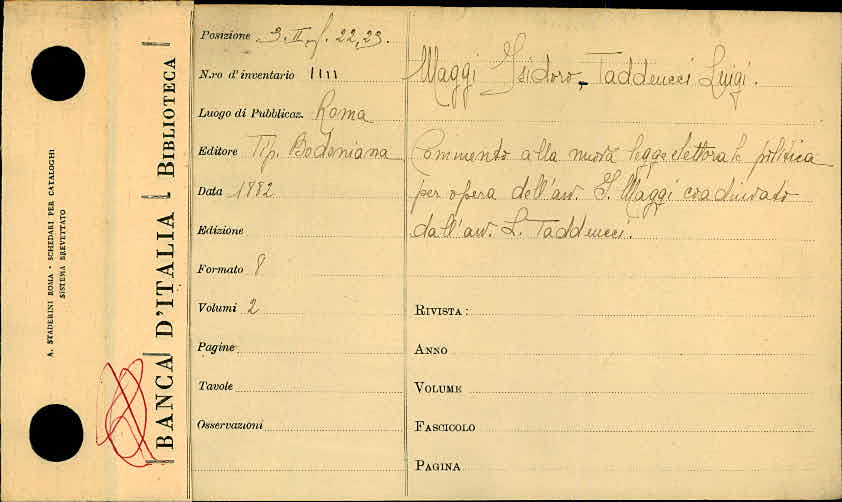 A. STADERINI ROMA - SCHEDARI PER CATALOGHI
SISTEMA BREVETTATO
BANCA D'ITALIA - BIBLIOTECA
Posizione 3. II. f. 22, 23.
N.ro d'inventario 1111
Luogo di Pubblicaz. Roma
Editore Tip. Bodoniana
Data 1882
Edizione
Formato 8
Volumi 2
Pagine
Tavole
Osservazioni
Maggi Isidoro, Taddeucci Luigi.
Commento alla nuova legge elettorale politica
per opera dell'avv. I. Maggi coadiuvato
dall'avv. L. Taddeucci.
RIVISTA:
ANNO
VOLUME
FASCICOLO
PAGINA